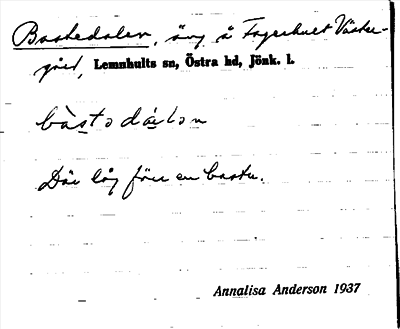 Bastedalen, äng å Fagerhult Väster-
gård, Lemnhults sn, Östra hd, Jönk. l.
bàstodàlən
Där låg förr en bastu.
Annalisa Anderson 1937